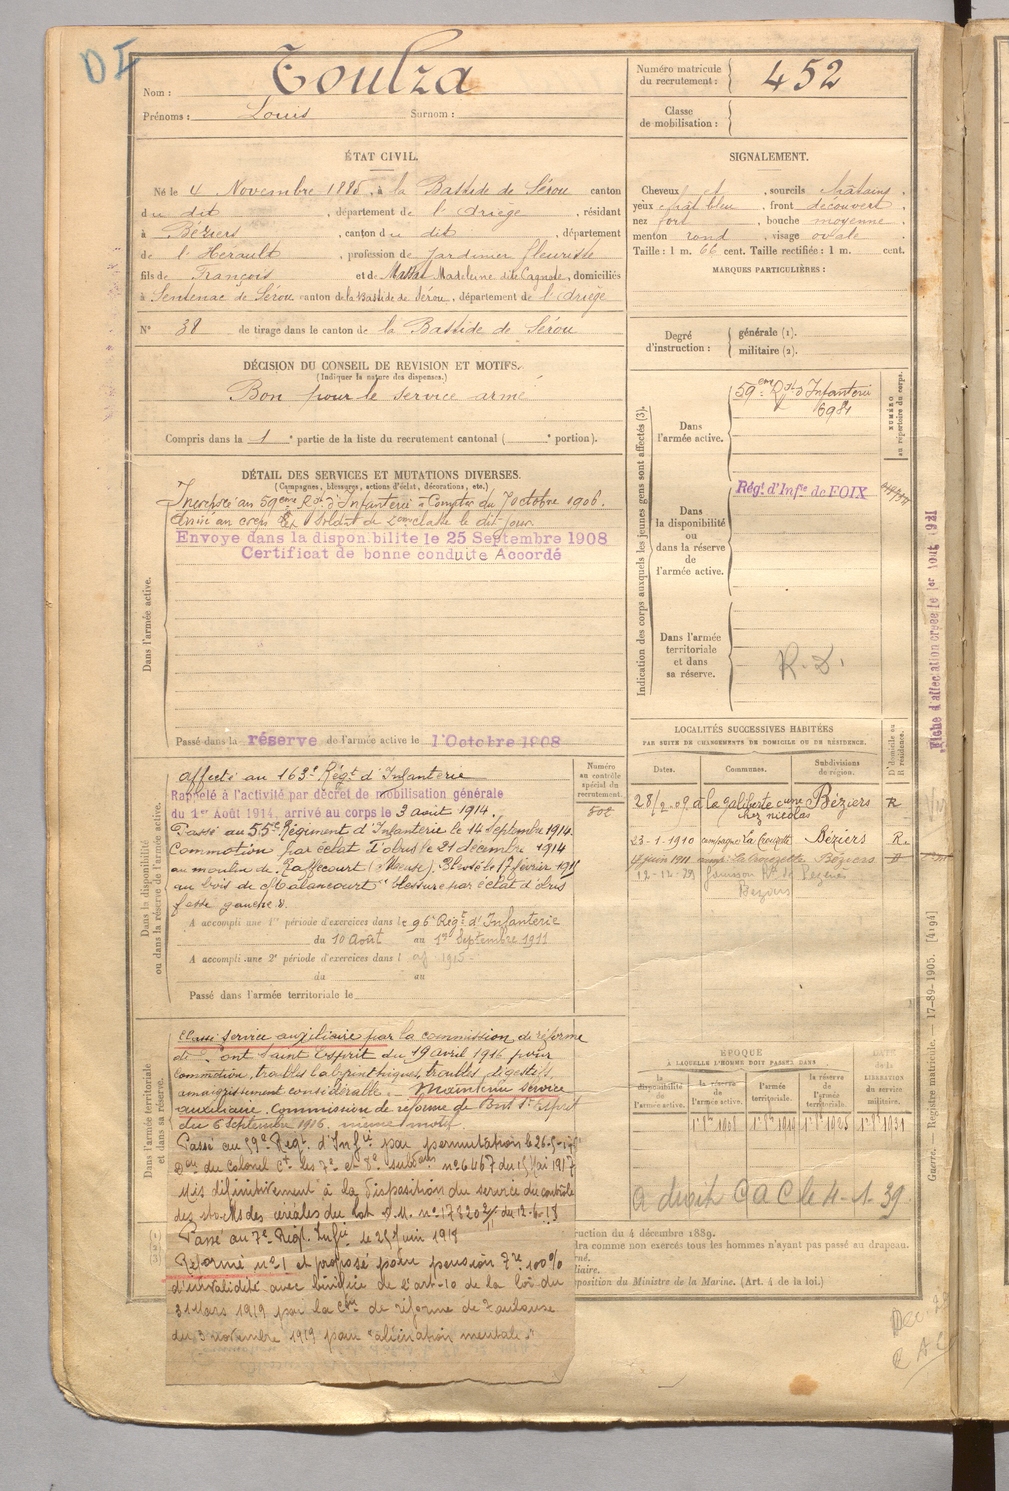 DI
Nom : Toulza
Prénoms : Louis Surnom :
Numéro matricule du recrutement : 452
Classe de mobilisation :
ÉTAT CIVIL.
Né le 4 Novembre 1885, à la Bastide de Sérou canton
du dit, département de l'Ariège, résidant
à Béziers, canton du dit, département
de l'Hérault, profession de Jardinier fleuriste
fils de François et de Madeleine dite Cagnole, domiciliés
à Sentenac de Sérou canton de la Bastide de Sérou, département de l'Ariège
N° 38 de tirage dans le canton de la Bastide de Sérou
SIGNALEMENT.
Cheveux et, sourcils châtains,
yeux chât bleu, front découvert,
nez fort, bouche moyenne,
menton rond, visage ovale.
Taille : 1 m. 66 cent. Taille rectifiée : 1 m. cent.
MARQUES PARTICULIÈRES :
Degré d'instruction : générale (1). militaire (2).
DÉCISION DU CONSEIL DE REVISION ET MOTIFS.
(Indiquer la nature des dispenses.)
Bon pour le service armé
Compris dans la 1e partie de la liste du recrutement cantonal ( e portion).
DÉTAIL DES SERVICES ET MUTATIONS DIVERSES.
(Campagnes, blessures, actions d'éclat, décorations, etc.)
Dans l'armée active.
Incorporé au 59eme Rgt d'Infanterie à Compter du 7 octobre 1906.
Arrivé au corps et Soldat de 2eme classe le dit jour.
Envoye dans la disponibilite le 25 Septembre 1908
Certificat de bonne conduite Accordé
Passé dans la réserve de l'armée active le 1 Octobre 1908
Indication des corps auxquels les jeunes gens sont affectés (3).
NUMÉRO au répertoire du corps.
Dans l'armée active.
59eme Rgt d'Infanterie
6981
Dans la disponibilité ou dans la réserve de l'armée active.
Régt d'Infie de FOIX
Dans l'armée territoriale et dans sa réserve.
R. D.
Fiche d'affectation créée le 1er Aout 1921
LOCALITÉS SUCCESSIVES HABITÉES
PAR SUITE DE CHANGEMENTS DE DOMICILE OU DE RÉSIDENCE.
Dates. Communes. Subdivisions de région. D' domicile ou R résidence.
28/2.09 chez Nicolas Béziers R
23-1-1910 campagne La Crouzette Béziers R.
4 juin 1911 Béziers
12-12-29
Beziers
Dans la disponibilité ou dans la réserve de l'armée active.
Numéro au contrôle spécial du recrutement.
Affecté au 163e Régt d'Infanterie
Rappelé à l'activité par décret de mobilisation générale
du 1er Août 1914, arrivé au corps le 3 août 1914.
Passé au 55e Régiment d'Infanterie le 14 Septembre 1914.
Commotion par éclat d'obus le 21 décembre 1914
au moulin de Raffecourt (Meuse). Blessé le 17 février 1915
au bois de Malancourt "Blessure par éclat d'obus
fesse gauche".
A accompli une 1re période d'exercices dans le 96e Régt d'Infanterie
du 10 Août au 1er Septembre 1911
A accompli une 2e période d'exercices dans l
du au
Passé dans l'armée territoriale le
Dans l'armée territoriale et dans sa réserve.
Classé service auxiliaire par la commission de réforme
de Pont Saint Esprit du 19 avril 1916 pour
commotion, troubles labyrinthiques, troubles digestifs,
amaigrissement considérable. - Maintenu service
auxiliaire. Commission de réforme de Pont St Esprit
du 6 septembre 1916. meme motif.
Passé au 59e Régt. d'Infie par permutation le 26-5-
Don du Colonel Ct les 7e et 8e subdons n° 6467 du 15 Mai 1917
Mis définitivement à la disposition du service du contrôle
des stocks des céréales du Lot
Passé au 7e Régt. Infie le 25 juin 1918
Réformé n° 1 et proposé pour pension 100%
d'invalidité avec bénéfice de l'art-10 de la loi du
31 Mars 1919 par la Con de réforme de Toulouse
du 3 novembre 1919 pour "aliénation mentale".
ÉPOQUE
À LAQUELLE L'HOMME DOIT PASSER DANS
la disponibilité de l'armée active. la réserve de l'armée active. l'armée territoriale. la réserve de l'armée territoriale. DATE de la LIBÉRATION du service militaire.
a droit CaC le 4-1-39
ruction du 4 décembre 1889.
dra comme non exercés tous les hommes n'ayant pas passé au drapeau.
liaire.
position du Ministre de la Marine. (Art. 4 de la loi.)
Guerre. — Registre matricule. — 17-89-1905. [4194]